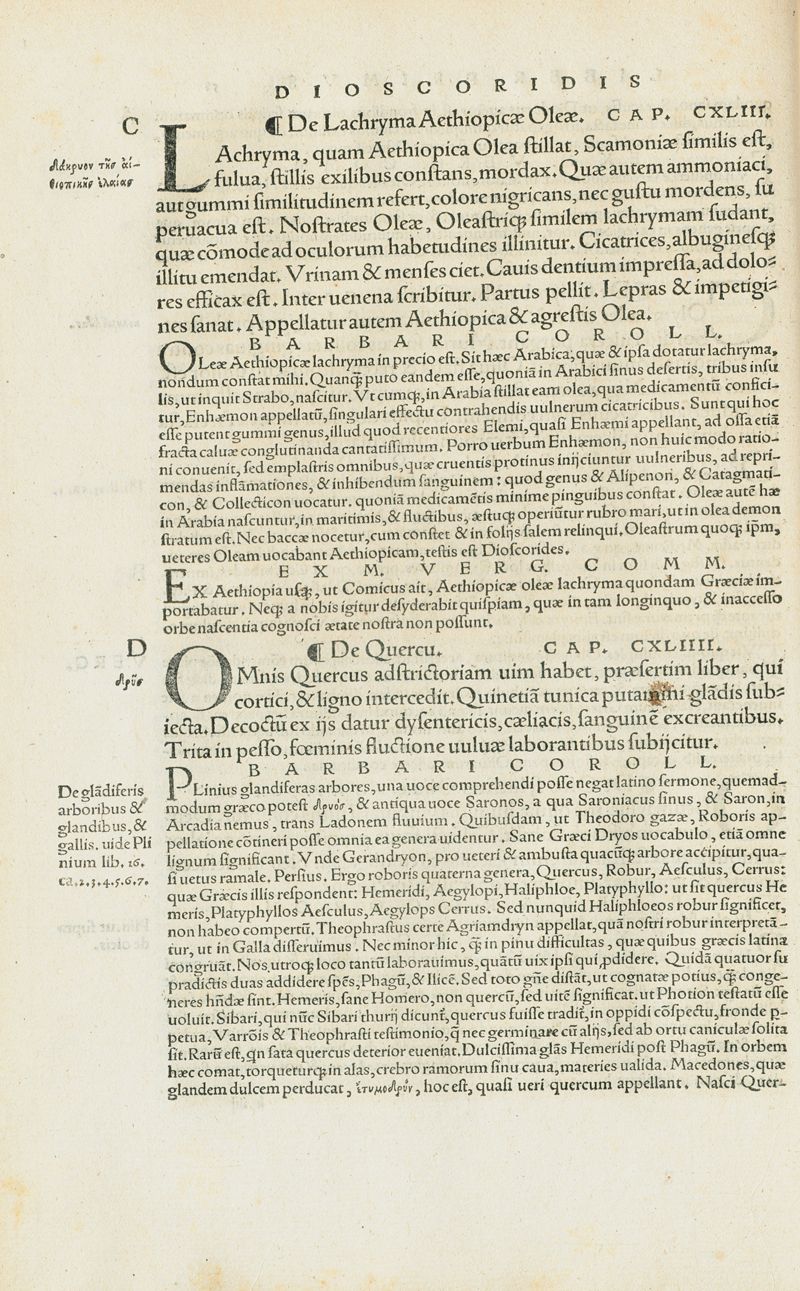 DIOSCORIDIS
C
¶ De Lachryma Aethiopicæ Oleæ. CAP. CXLIII.
Δάκρυον τῆσ αἰ-
θιοπικῆσ ἐλαίασ
LAchryma, quam Aethiopica Olea ſtillat, Scamoniæ ſimilis eſt,
fulua, ſtillis exilibus conſtans, mordax. Quæ autem ammoniaci,
aut gummi ſimilitudinem refert, colore nigricans, nec guſtu mordens, ſu
peruacua eſt. Noſtrates Oleæ, Oleaſtriq; ſimilem lachrymam ſudant,
quæ cõmode ad oculorum habetudines illinitur. Cicatrices, albugineſq;
illitu emendat. Vrinam & menſes ciet. Cauis dentium impreſſa, ad dolo-
res efficax eſt. Inter uenena ſcribitur. Partus pellit. Lepras & impetigi-
nes ſanat. Appellatur autem Aethiopica & agreſtis Olea.
BARBARI COROLL.
OLeæ Aethiopicæ lachryma in precio eſt. Sit hæc Arabica, quæ & ipſa dotatur lachryma,
nondum conſtat mihi. Quanq̃ puto eandem eſſe, quoniã in Arabici ſinus defertis, tribus inſu
lis, ut inquit Strabo, naſcitur. Vt cumq;, in Arabia ſtillat eam olea, qua medicamentũ confici-
tur, Enhæmon appellatũ, ſingulari effectu contrahendis uulnerum cicatricibus. Sunt qui hoc
eſſe putent gummi genus, illud quod recentiores Elemi, quaſi Enhæmi appellant, ad oſſa etiã
fracta caluæ conglutinanda cantatiſſimum. Porro uerbum Enhæmon, non huic modo ratio-
ni conuenit, ſed emplaſtris omnibus, quæ cruentis protinus inijciuntur uulneribus, ad repri-
mendas inflãmationes, & inhibendum ſanguinem: quod genus & Alipenon, & Catagmati-
con, & Collecticon uocatur. quoniã medicamẽtis minime pinguibus conſtat. Oleæ autẽ hæ
in Arabia naſcuntur, in maritimis, & fluctibus, æſtuq; operiũtur rubro mari, ut in olea demon
ſtratum eſt. Nec baccæ nocetur, cum conſtet & in folijs ſalem relinqui. Oleaſtrum quoq; ipm,
ueteres Oleam uocabant Aethiopicam, teſtis eſt Dioſcorides.
EX M. VERG. COMM.
EX Aethiopia uſq;, ut Comicus ait, Aethiopicæ oleæ lachryma quondam Græciæ im-
portabatur. Neq; a nobis igitur deſyderabit quiſpiam, quæ in tam longinquo, & inacceſſo
orbe naſcentia cognoſci ætate noſtra non poſſunt.
D
¶ De Quercu. CAP. CXLIIII.
Δρῦσ
OMnis Quercus adſtrictoriam uim habet, præſertim liber, qui
cortici, & ligno intercedit. Quinetiã tunica putamini glãdis ſub-
iecta. Decoctũ ex ijs datur dyſentericis, cæliacis, ſanguinẽ excreantibus.
Trita in peſſo, fœminis fluctione uuluæ laborantibus ſubijcitur.
BARBARI COROLL.
De glãdiferis
arboribus &
glandibus, &
gallis. uide Pli
nium lib. 16.
ca. 2. 3. 4. 5. 6. 7.
PLinius glandiferas arbores, una uoce comprehendi poſſe negat latino ſermone, quemad-
modum græco poteſt δρυόσ, & antiqua uoce Saronos, a qua Saroniacus ſinus, & Saron, in
Arcadia nemus, trans Ladonem fluuium. Quibuſdam, ut Theodoro gazæ, Roboris ap-
pellatione cõtineri poſſe omnia ea genera uidentur. Sane Græci Dryos uocabulo, etiã omne
lignum ſignificant. Vnde Gerandryon, pro ueteri & ambuſta quacũq; arbore accipitur, qua-
ſi uetus ramale. Perſius. Ergo roboris quaterna genera, Quercus, Robur, Aeſculus, Cerrus:
quæ Græcis illis reſpondent: Hemeridi, Aegylopi, Haliphloe, Platyphyllo: ut ſit quercus He
meris, Platyphyllos Aeſculus, Aegylops Cerrus. Sed nunquid Haliphloeos robur ſignificet,
non habeo compertũ. Theophraſtus certe Agriamdryn appellat, quã noſtri robur interpretã-
tur, ut in Galla differuimus. Nec minor hic, q̃ in pinu difficultas, quæ quibus græcis latina
congruãt. Nos utroq; loco tantũ laborauimus, quãtũ uix ipſi qui ꝓdidere. Quidã quatuor ſu
pradictis duas addidere ſpẽs, Phagũ, & Ilicẽ. Sed toto gñe diſtãt, ut cognatæ potius, q̃ conge-
neres hñdæ ſint. Hemeris, ſane Homero, non quercũ, ſed uitẽ ſignificat. ut Photion teſtatũ eſſe
uoluit. Sibari, qui nũc Sibari thurij dicunt̃, quercus fuiſſe tradit̃, in oppidi cõſpectu, fronde ꝑ-
petua, Varrõis & Theophraſti teſtimonio, q̃ nec germinare cũ alijs, ſed ab ortu caniculæ ſolita
ſit. Rarũ eſt, qn ſata quercus deterior eueniat. Dulciſſima glãs Hemeridi poſt Phagũ. In orbem
hæc comat, torqueturq; in alas, crebro ramorum ſinu caua, materies ualida. Macedones, quæ
glandem dulcem perducat, ἐτυμοδρῦν, hoc eſt, quaſi ueri quercum appellant. Naſci Quer-